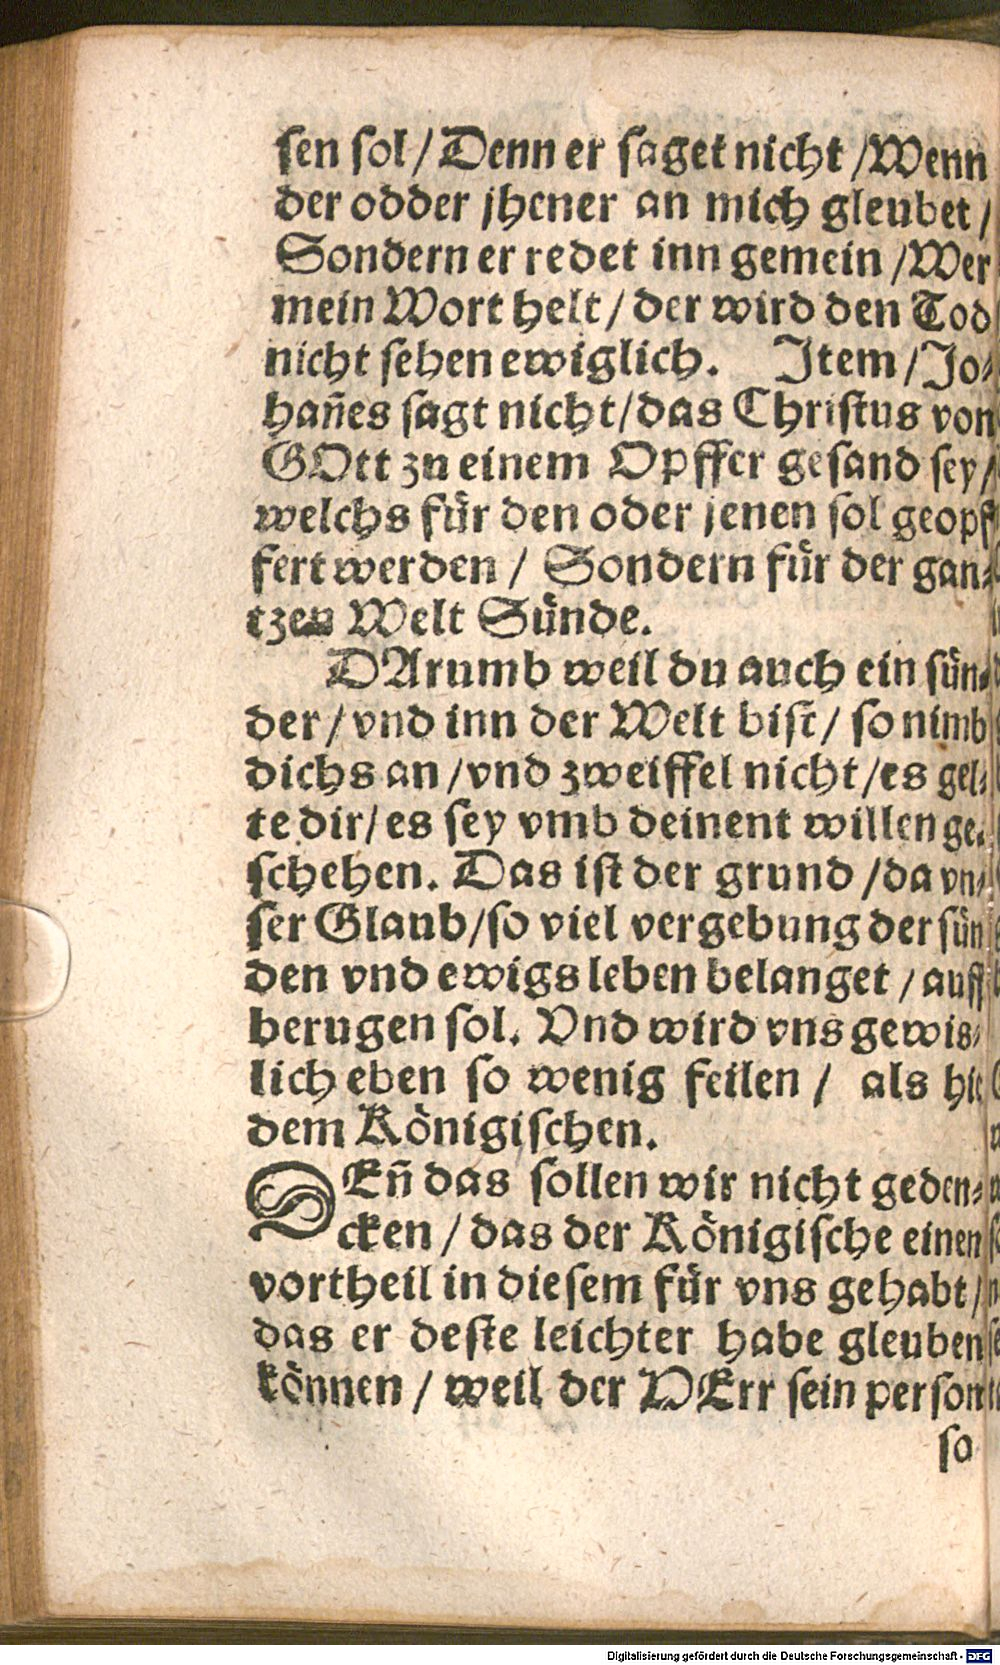 sen sol / Denn er saget nicht / Wenn
der odder jhener an mich gleubet /
Sondern er redet inn gemein / Wer
mein Wort helt / der wird den Tod
nicht sehen ewiglich. Item / Jo-
hañes sagt nicht / das Christus von
GOtt zu einem Opffer gesand sey /
welchs für den oder jenen sol geopf
fert werden / Sondern für der gan-
tzen Welt Sünde.
DArumb weil du auch ein sün-
der / vnd inn der Welt bist / so nimb
dichs an / vnd zweiffel nicht / es gel-
te dir / es sey vmb deinent willen ge-
schehen. Das ist der grund / da vn-
ser Glaub / so viel vergebung der sün
den vnd ewigs leben belanget / auff
berugen sol. Vnd wird vns gewis-
lich eben so wenig feilen / als hie
dem Königischen.
DEñ das sollen wir nicht geden-
cken / das der Königische einen
vortheil in diesem für vns gehabt /
das er deste leichter habe gleuben
können / weil der HErr sein person
so
Digitalisierung gefördert durch die Deutsche Forschungsgemeinschaft - DFG